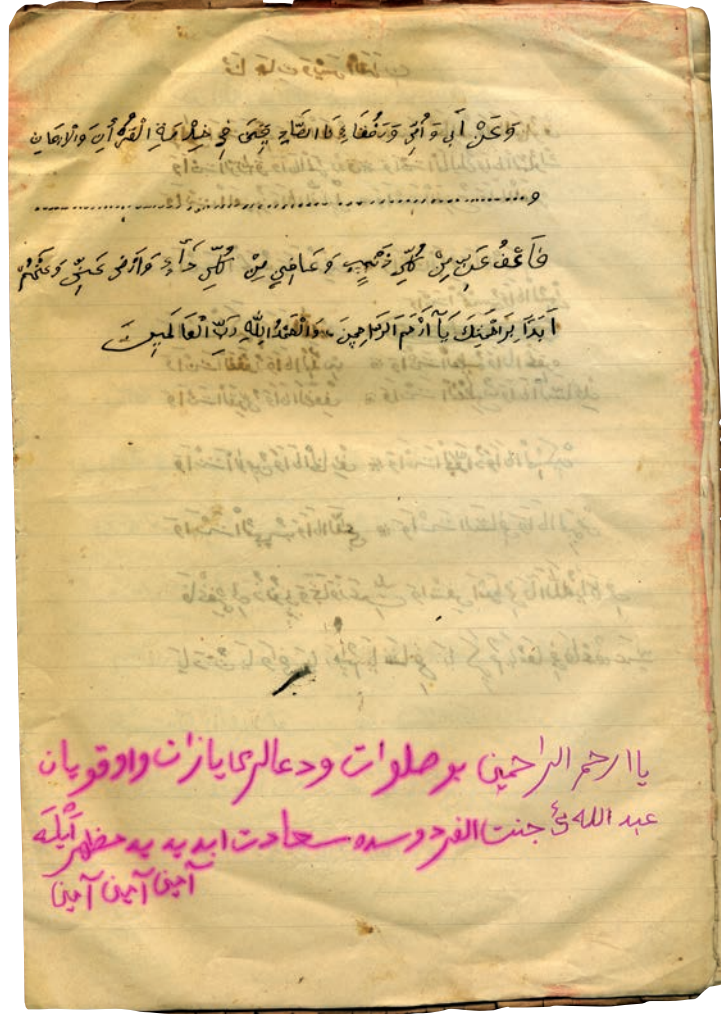 وَعَنْ اَبِى وَ اُمِّى وَ رَفُقَاءِ نَا الصَّادِ قِينَ فِى خِدْمَةِ الْقُرْأٰنِ وَالْاِيمَانِ
و............................................................
فَاعْفُ عَنِّى مِنْ كُلِّ ذَنْبٍ وَ عَافِنِي مِنْ كُلِّ دَٓاءٍ وَارْضَ عَنِّى وَعَنْهُمْ
اَبَدًا بِرَحْمَتِكَ يَٓا اَرْحَمَ الرَّاحِمِينَ. وَالْحَمْدُ لِلّٰهِ رَبِّ الْعَالَمِينَ
يا ارحم الراحمين بو صلوات و دعالرى يازان و اوقويان
عبد الله ئ جنت الفردوسده سعادت ابديه يه مظهر اَيْلَه
آمين آمين آمين